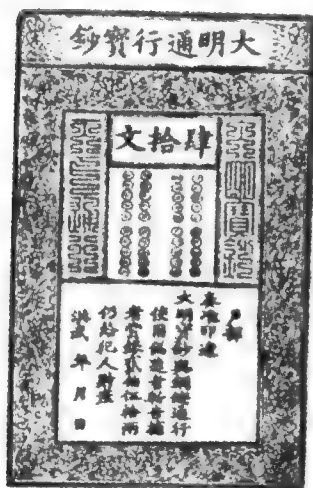 大明通行寶鈔
肆拾文
戶部
奏准印造
大明寶鈔與銅錢通行
使用偽造者斬告捕
者賞銀貳佰伍拾兩
仍給犯人財產
洪武 年 月 日